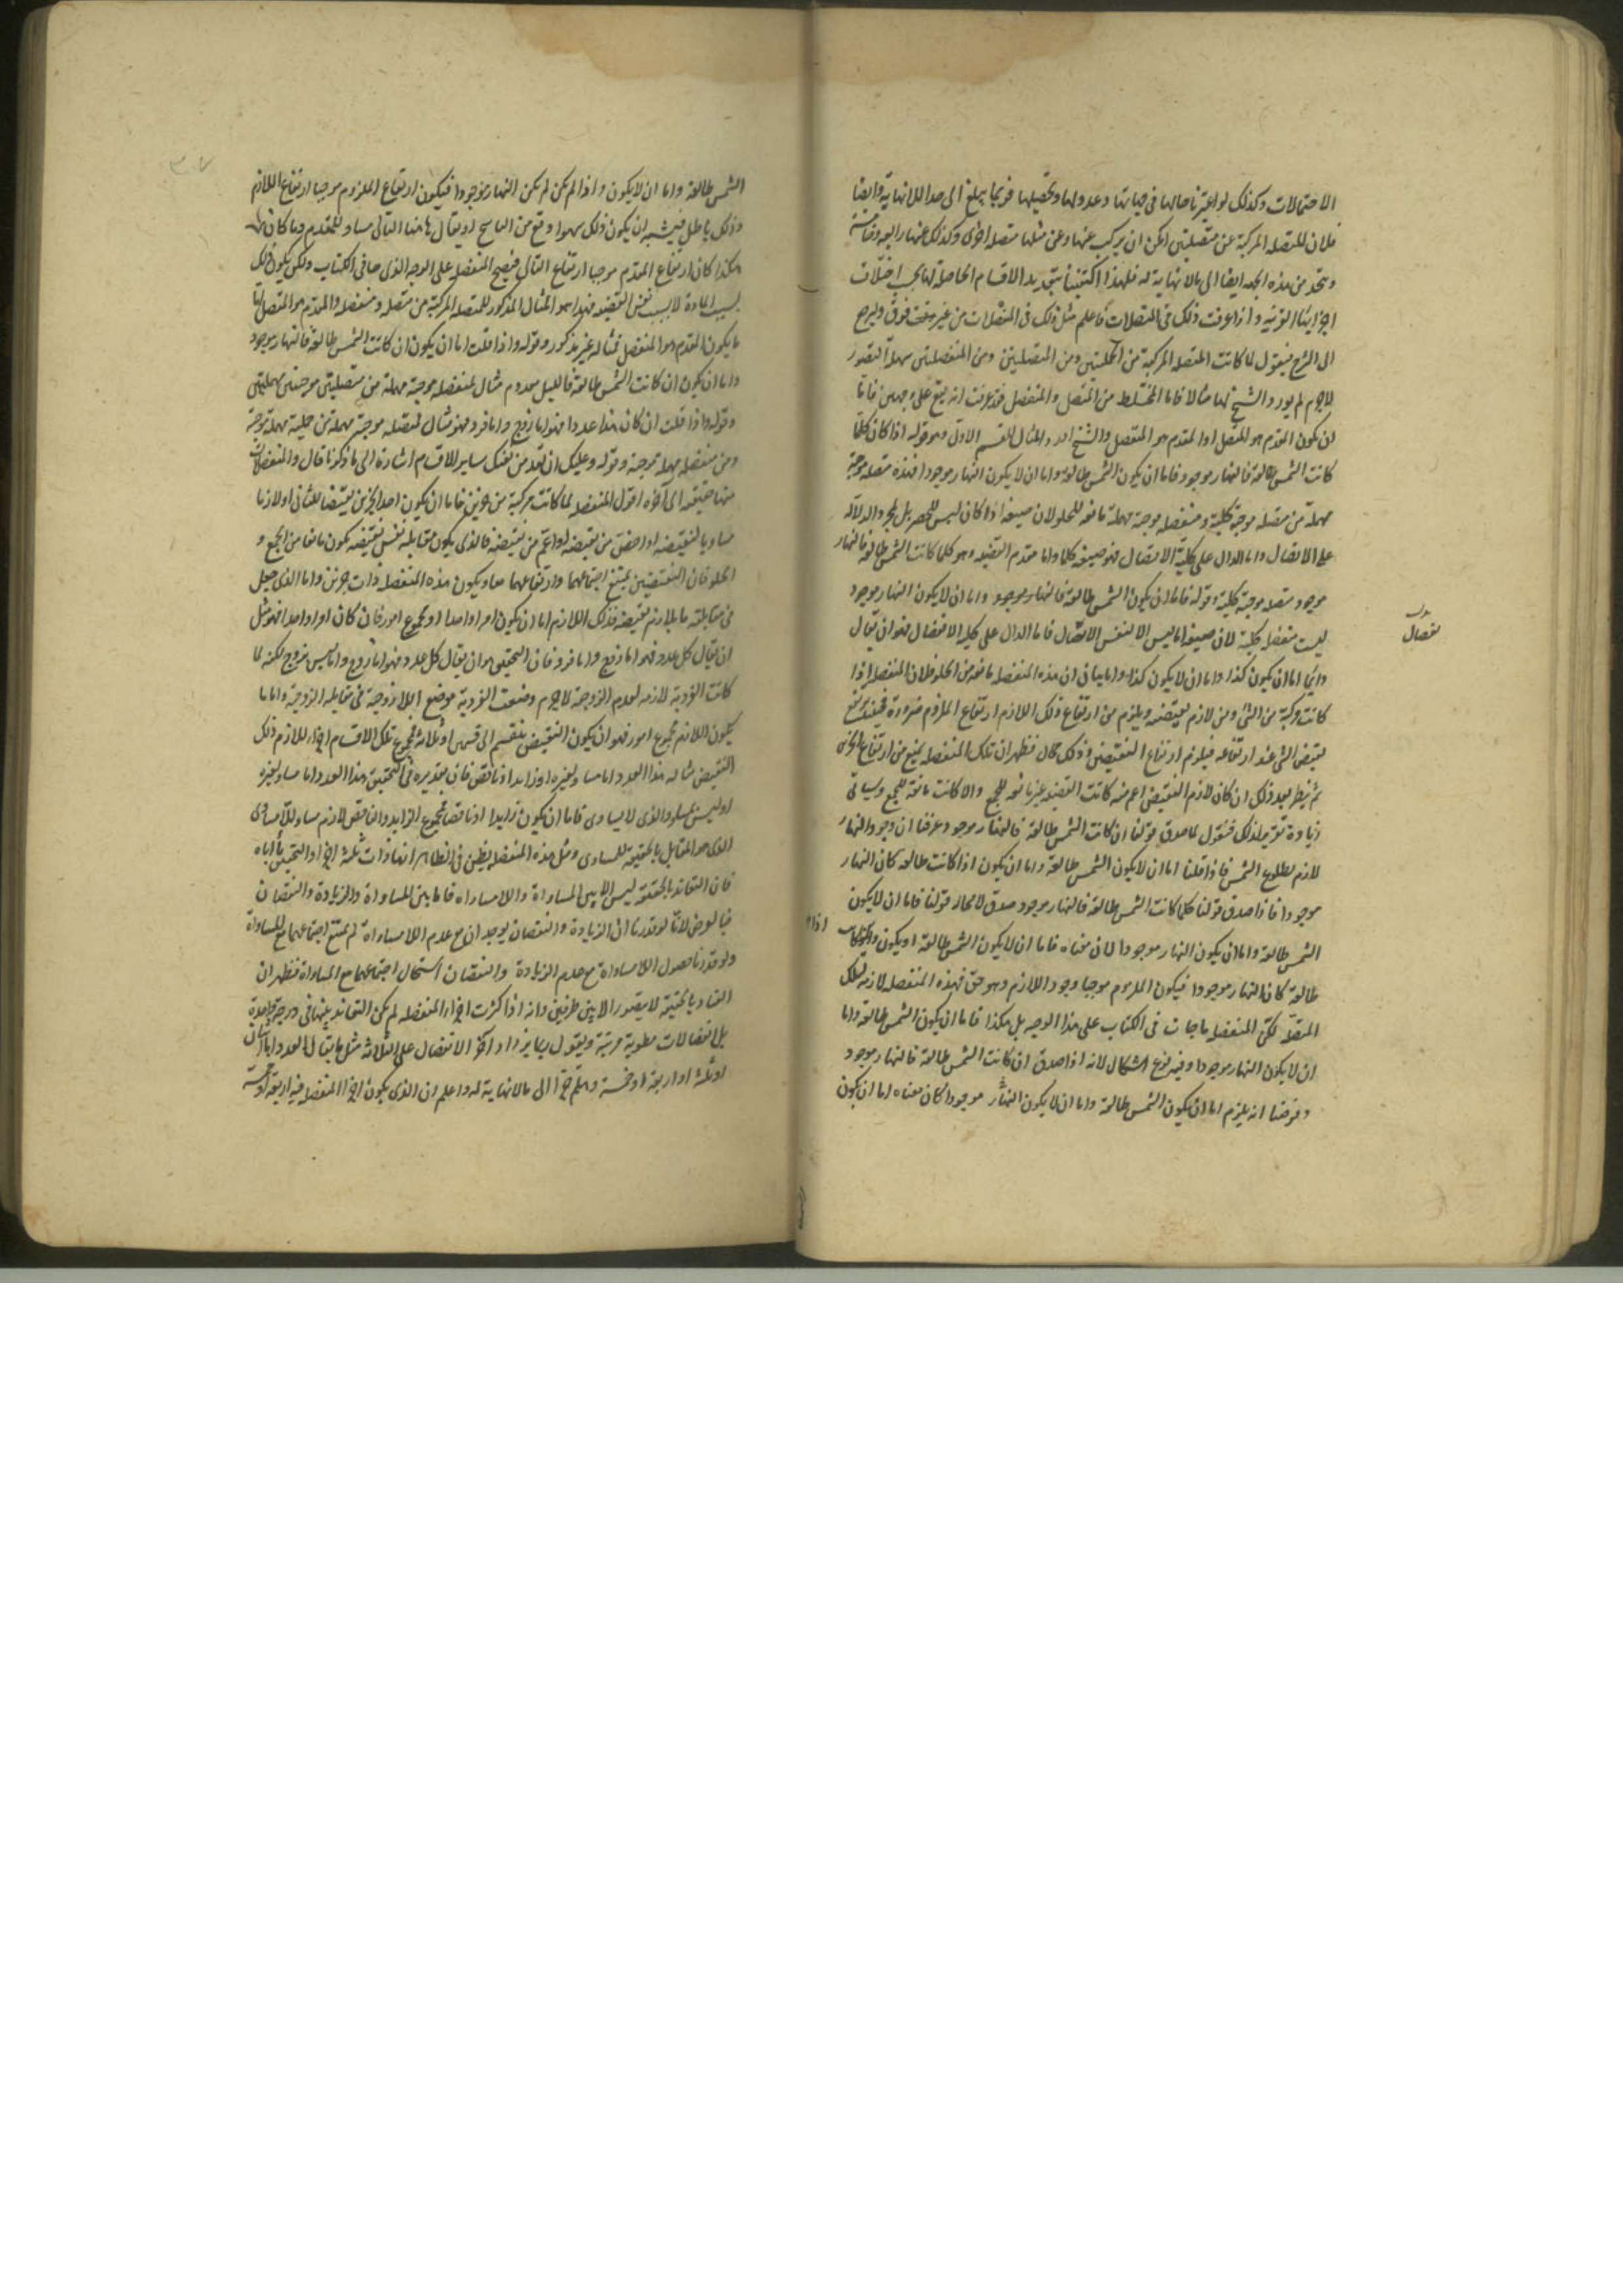 الاحتمالات وكذلك لو اعتبرنا حالها فى جهاتها وعدولها وتحصيلها فربما يبلغ الى حد اللانهاية وايضا
فلان للمتصله المركبة عن متصلتين امكن ان يركب عنها وعن مثلها متصله اخرى وكذلك عنها رابعه وخامسة
من هذه الجهه ايضا الى مالانهاية له فلهذا اكتفينا بتحديد الاقسام الحاصلة لها بحسب اختلاف
اجزائها القريبه واذا عرفت ذلك فى المتصلات فاعلم مثل ذلك فى المنفصلات من غير فرق ولنرجع
الى الشرح فنقول لما كانت المتصله المركبة من الحمليتين ومن المتصلتين ومن المنفصلتين سهلة التصور
لاجرم لم يورد الشيخ لها مثالا فاما المختلط من المتصل والمنفصل فقد عرفت انه يقع على وجهين فانا
ان يكون المقدم هو المتصل او المقدم هو المنفصل والشيخ اورد المثال للقسم الاول وهو قوله اذا كان كلما
كانت الشمس طالعة فالنهار موجود فاما ان يكون الشمس طالعة واما ان لا يكون النهار موجودا فهذه متصله موجبة
مهملة من متصله موجبة كلية ومنفصله موجبة مهملة مانعه للخلو لان صيغه اذا كان ليس للحصر بل لمجرد الدلالة
على الاتصال واما الدال على كلية الاتصال فهو صيغه كلما واما مقدم القضيه وهو كلما كانت الشمس طالعة فالنهار
موجود متصله موجبة كلية وقوله فاما ان يكون الشمس طالعة فالنهار موجود واما ان لا يكون النهار موجود
ليست منفصله كلية لان صيغه اما ليس الا لنفس الانفصال فاما الدال على كلية الانفصال فهو ان يقال
دائما اما ان يكون كذا واما ان لا يكون كذا واما بيان ان هذه المنفصله مانعة من الخلو فلان المنفصله اذا
كانت مركبة من الشئ ومن لازم نقيضه ويلزم من ارتفاع ذلك اللازم ارتفاع الملزوم ضرورة فحينئذ يرتفع
نقيض الشئ عند ارتفاعه فيلزم ارتفاع النقيضين وذلك محال فظهر ان تلك المنفصله يمنع من ارتفاع الجزئين
ثم ينظر بعد ذلك ان كان لازم النقيض اعم منه كانت القضيه غير مانعه للجمع والا كانت مانعة للجمع وسياتى
زيادة تقرير لذلك فنقول لما صدق قولنا ان كانت الشمس طالعة فالنهار موجود وعرفنا ان وجود النهار
لازم لطلوع الشمس فاذا قلنا اما ان لا يكون الشمس طالعة واما ان يكون اذا كانت طالعه كان النهار
موجودا فاذا صدق قولنا كلما كانت الشمس طالعة فالنهار موجود صدق لا محالة قولنا فاما ان لا يكون
الشمس طالعة واما ان يكون النهار موجودا لان معناه فاما ان لا يكون الشمس طالعة او يكون واذا كانت
طالعة كان النهار موجودا فيكون الملزوم موجبا وجود اللازم وهو حق فهذه المنفصله لازمه لتلك
المتصلة لكن المنفصله ما جاءت فى الكتاب على هذا الوجه بل هكذا فاما ان يكون الشمس طالعة واما
ان لا يكون النهار موجودا وفيه نوع اشكال لانه اذا صدق ان كانت الشمس طالعة فالنهار موجود
وفرضنا انه يلزم اما ان يكون الشمس طالعة واما ان لا يكون النهار موجودا كان معناه اما ان يكون
الشمس طالعة واما ان لا يكون واذا لم يكن لم يكن النهار موجودا فيكون ارتفاع الملزوم موجبا ارتفاع اللازم
وذلك باطل فيشبه ان يكون ذلك سهوا وقع من الناسخ او يقال هاهنا التالى مساو للمقدم وما كان
هكذا كان ارتفاع المقدم موجبا ارتفاع التالى فيصح المنفصل على الوجه الذى جا فى الكتاب ولكن يكون ذلك
بسبب المادة لا بسبب نفس القضيه فهذا هو المثال المذكور للمتصله المركبة من متصله ومنفصله والمقدم هو المتصل فاما
ما يكون المقدم هو المنفصل فمثاله غير مذكور وقوله واذا قلت اما ان يكون ان كانت الشمس طالعة فالنهار موجود
واما ان يكون ان كانت الشمس طالعة فالليل معدوم مثال لمنفصله موجبة مهملة من متصلتين موجبتين مهملتين
وقوله واذا قلت ان كان هذا عددا فهو اما زوج واما فرد فهو مثال لمتصله موجبة مهملة من حملية مهملة موجبة
ومن منفصله مهملة موجبة وقوله وعليك ان تعد من نفسك ساير الاقسام اشارة الى ما ذكرنا قال والمنفصلات
منها حقيقيه الى آخره اقول المنفصله لما كانت مركبة من جزئين فاما ان يكون احد الجزئين نقيضا للثانى او لازما
مساويا لنقيضه او اخص من نقيضه او اعم من نقيضه فالذى يكون مقابله نفس نقيضه تكون مانعا من الجمع و
الخلو فان النقيضين يمتنع اجتماعهما وارتفاعهما معا ويكون هذه المنفصله ذات جزئين واما الذى جعل
فى مقابلته ما يلازم نقيضه فذلك اللازم اما ان يكون امرا واحدا او مجموع امور فان كان امرا واحدا فهو مثل
ان يقال كل عدد فهو اما زوج واما فرد فان التحقيق هو ان يقال كل عدد فهو اما زوج واما ليس بزوج لكنه لما
كانت الفردية لازمه لعدم الزوجية لاجرم وضعت الفردية موضع اللازوجية فى مقابله الزوجية واما ما
يكون اللازم مجموع امور فهو ان يكون النقيض ينقسم الى قسمين او ثلاثه فمجموع تلك الاقسام اجزاء للازم ذلك
النقيض مثاله هذا العدد اما مساو لغيره او زايد او ناقص فان تقديره فى التحقيق هذا العدد اما مساو لغيره
او ليس بمساو والذى لا يساوى فاما ان يكون زايدا او ناقصا فمجموع الزايد والناقص لازم مساو للامساوى
الذى هو المقابل بالحقيقه للمساوى ومثل هذه المنفصله يظن فى الظاهر انها ذات ثلثه اجزاء والتحقيق يأباه
فان التعاند بالحقيقة ليس الا بين المساواة واللامساواه فاما بين المساواة والزيادة والنقصان
فبالعرض لانا لو قدرنا ان الزيادة والنقصان يوجدان مع عدم اللامساواة لم يمتنع اجتماعهما مع المساواة
ولو قدرنا حصول اللامساواة مع عدم الزيادة والنقصان استحال اجتماعهما مع المساواة فظهر ان
العناد بالحقيقة لا يتصور الا بين طرفين وانه اذا كثرت اجزاء المنفصله لم يكن التعاند بينها فى درجة واحدة
بل انفصالات مطوية مرتبة ونقول ربما يزداد اجزاء الانفصال على الثلاثة مثل ما يقال العدد اما اثنان
او ثلثه او اربعة او خمسة وهلم جرا الى مالانهاية له واعلم ان الذى يكون اجزاء المنفصله فيه اربعة او خمسة